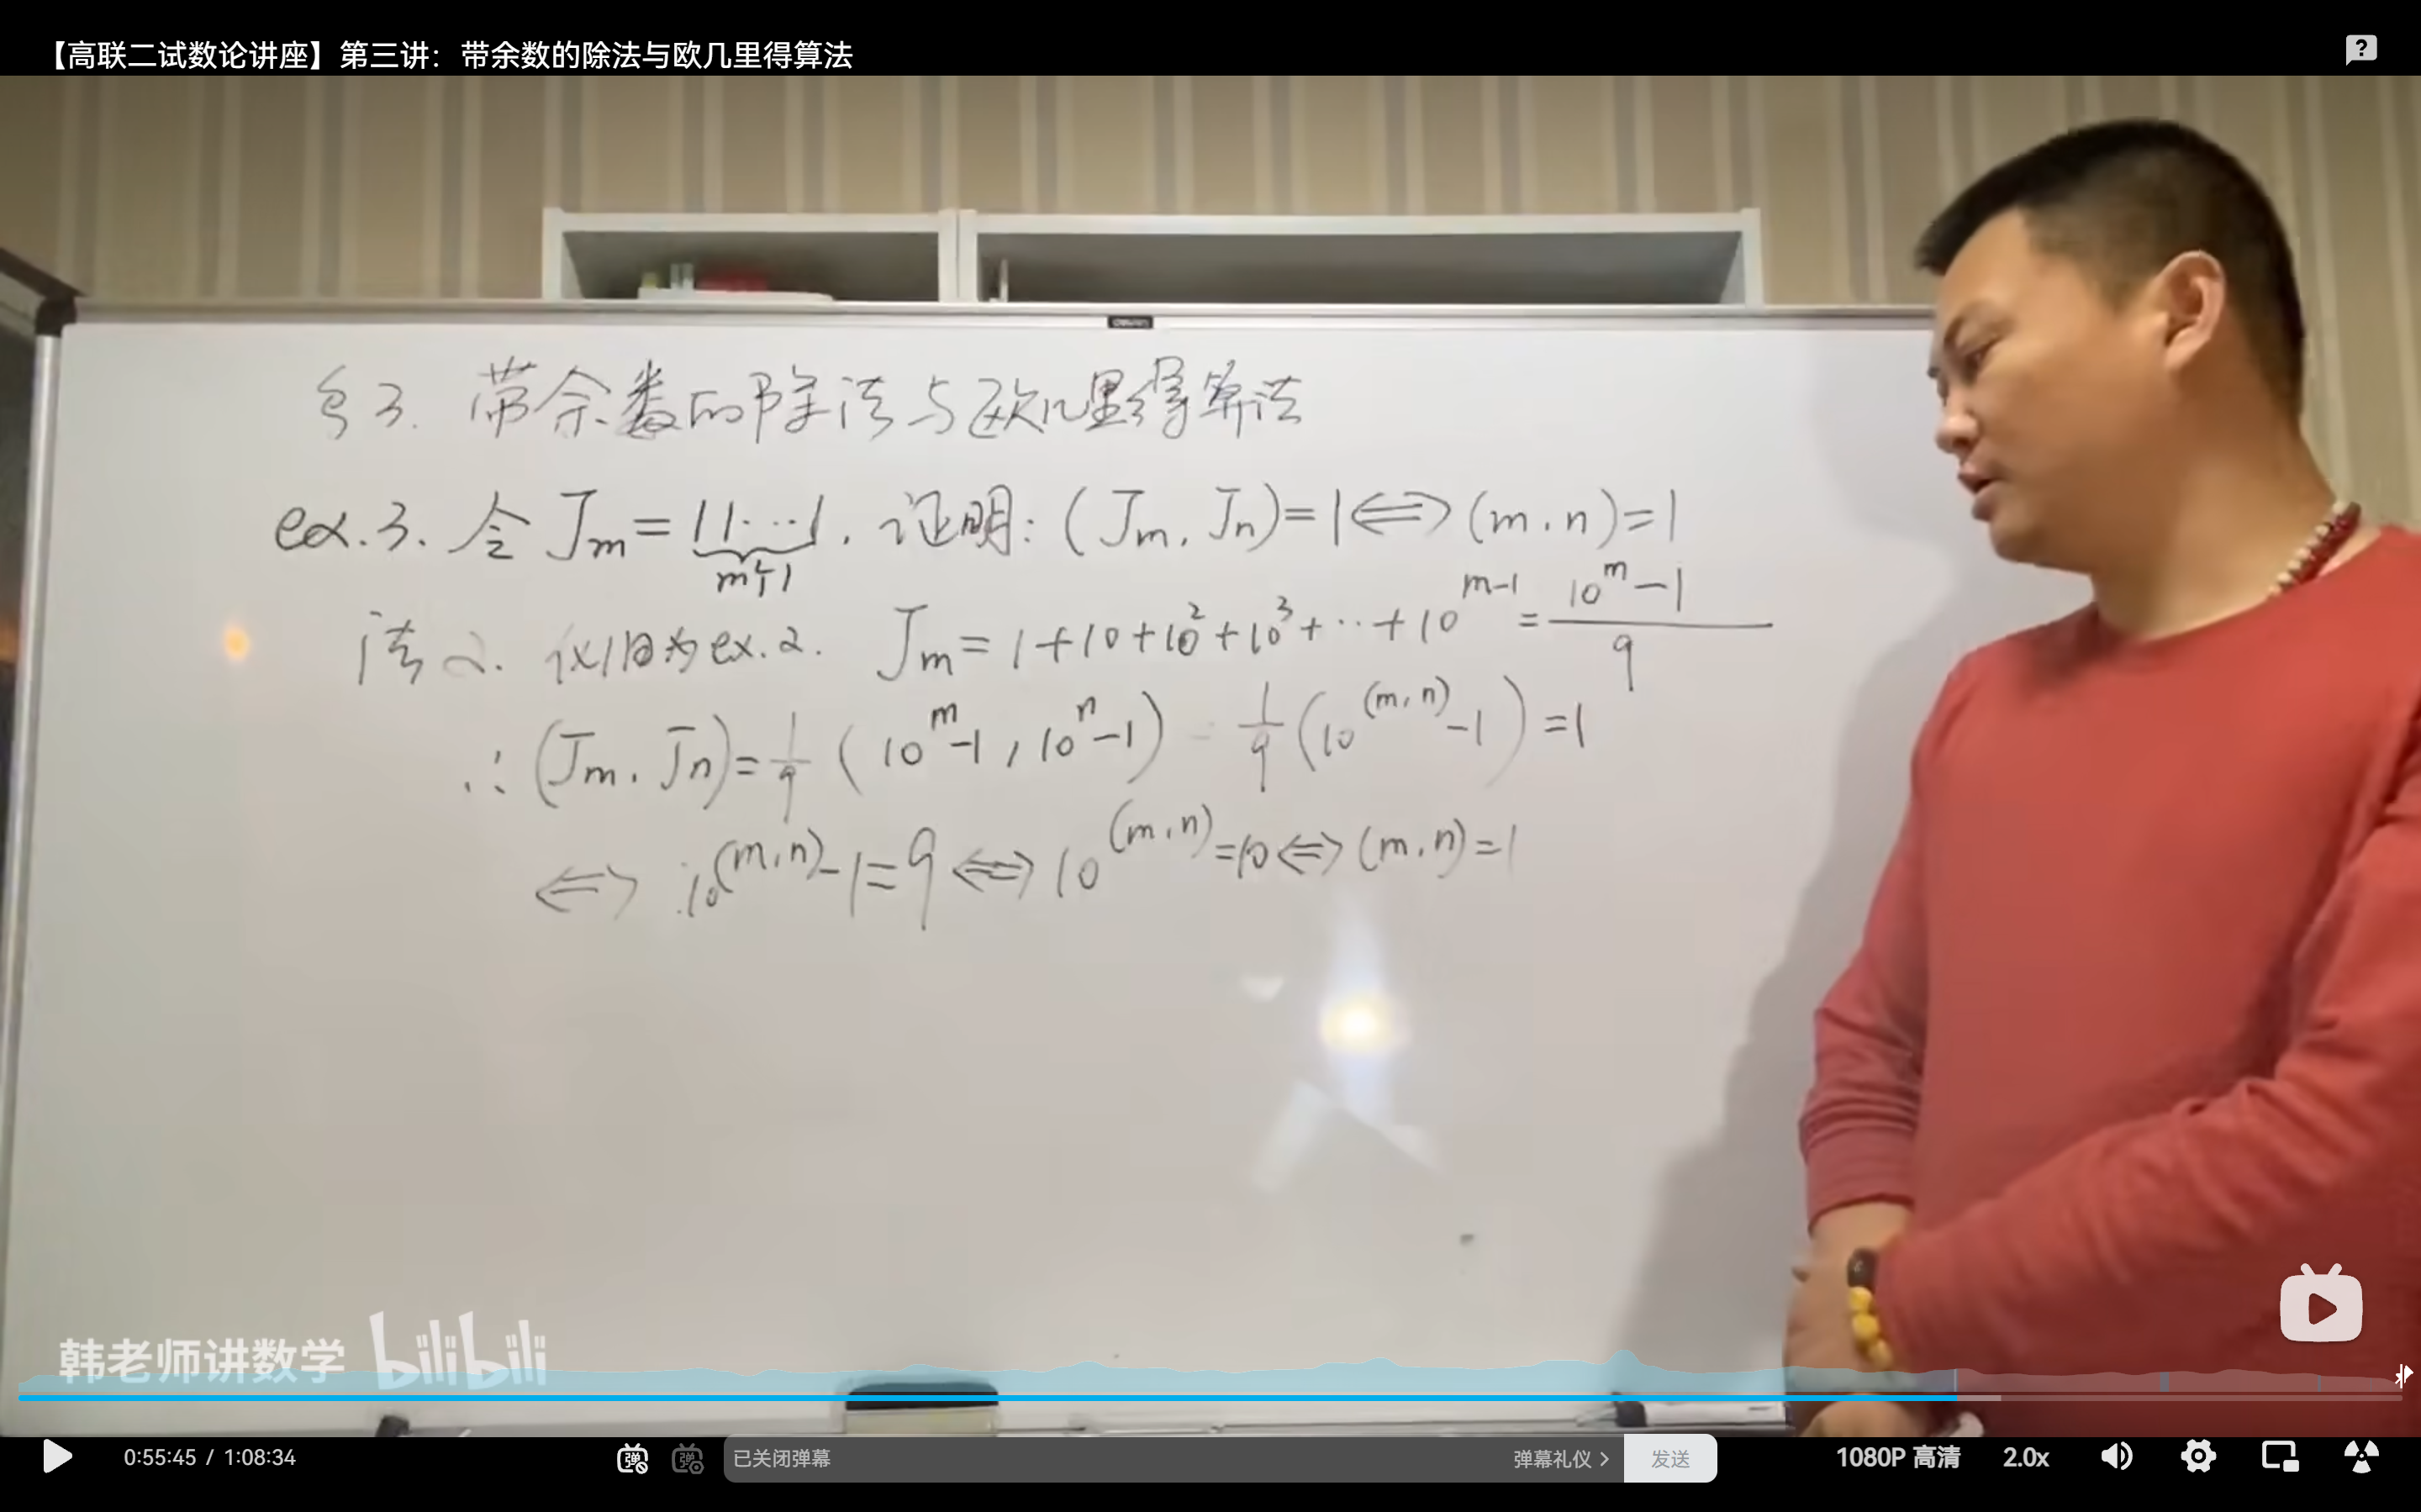 【高联二试数论讲座】第三讲：带余数的除法与欧几里得算法
§3. 带余数的除法与欧几里得算法
ex.3. 令 Jm = 11⋯1, 证明: (Jm, Jn)=1 ⟺ (m, n)=1
m个1
法2. 仅归为ex.2. Jm = 1+10+10²+10³+⋯+10^(m-1) = (10^m-1)/9
∴ (Jm, Jn) = 1/9 (10^m-1, 10^n-1) = 1/9 (10^(m,n)-1) = 1
⟺ 10^(m,n)-1=9 ⟺ 10^(m,n)=10 ⟺ (m,n)=1
韩老师讲数学 bilibili
0:55:45 / 1:08:34
弹
弹
已关闭弹幕
弹幕礼仪 >
发送
1080P 高清
2.0x